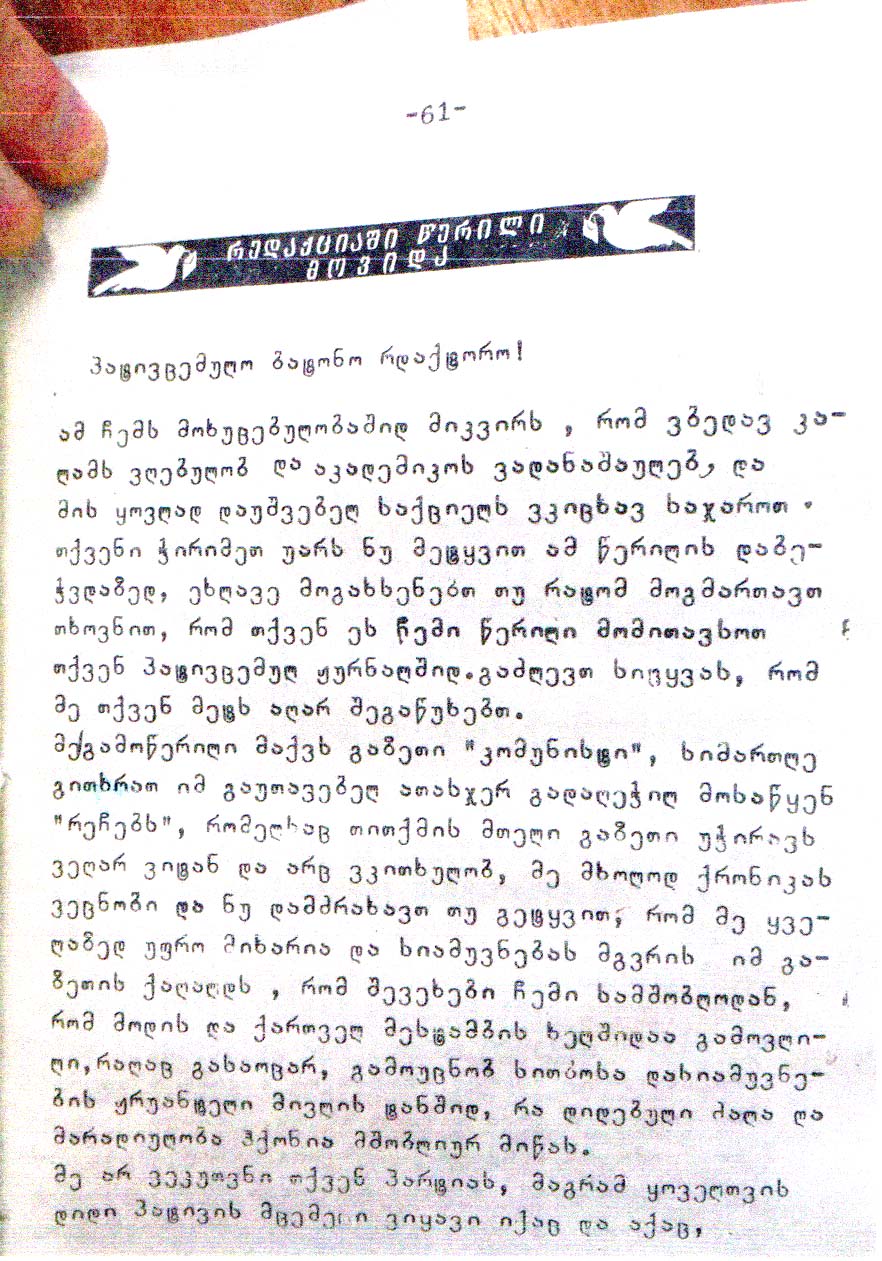 -61-
რედაქციაში წერილი
მოვიდა
პატივცემულო ბატონო რდაქტორო!
ამ ჩემს მოხუცებულობაშიდ მიკვირს , რომ ვბედავ კა-
ლამს ვღებულობ და აკადემიკოს ვადანაშაულებ, და
მის ყოვლად დაუშვებელ საქციელს ვკიცხავ საჯაროთ .
თქვენი ჭირიმეთ უარს ნუ მეტყვით ამ წერილის დაბე-
ჭვდაზედ, ეხლავე მოგახსენებთ თუ რატომ მოგმართავთ
თხოვნით, რომ თქვენ ეს ჩემი წერილი მომითავსოთ
თქვენ პატივცემულ ჟურნალშიდ.გაძლევთ სიტყვას, რომ
მე თქვენ მეტს აღარ შეგაწუხებთ.
მე გამოწერილი მაქვს გაზეთი "კომუნისტი", სიმართლე
გითხრათ იმ გაუთავებელ ათასჯერ გადაღეჭილ მოსაწყენ
"რეჩებს", რომელსაც თითქმის მთელი გაზეთი უჭირავს
ვეღარ ვიტან და არც ვკითხულობ, მე მხოლოდ ქრონიკას
ვეცნობი და ნუ დამძრახავთ თუ გეტყვით, რომ მე ყვე-
ლაზედ უფრო მიხარია და სიამუვნებას მგვრის იმ გა-
ზეთის ქაღალდს , რომ შევეხები ჩემი სამშობლოდან,
რომ მოდის და ქართველ მესტამბის ხელშიდაა გამოვლი-
ლი,რაღაც გასაოცარ, გამოუცნობ სითბოსა დასიამუვნე-
ბის ჟრუანტელი მივლის ტანშიდ, რა დიდებული ძალა და
მარადიულობა ჰქონია მშობლიურ მიწას.
მე არ ვეკუთვნი თქვენ პარტიას, მაგრამ ყოველთვის
დიდი პატივის მცემელი ვიყავი იქაც და აქაც,